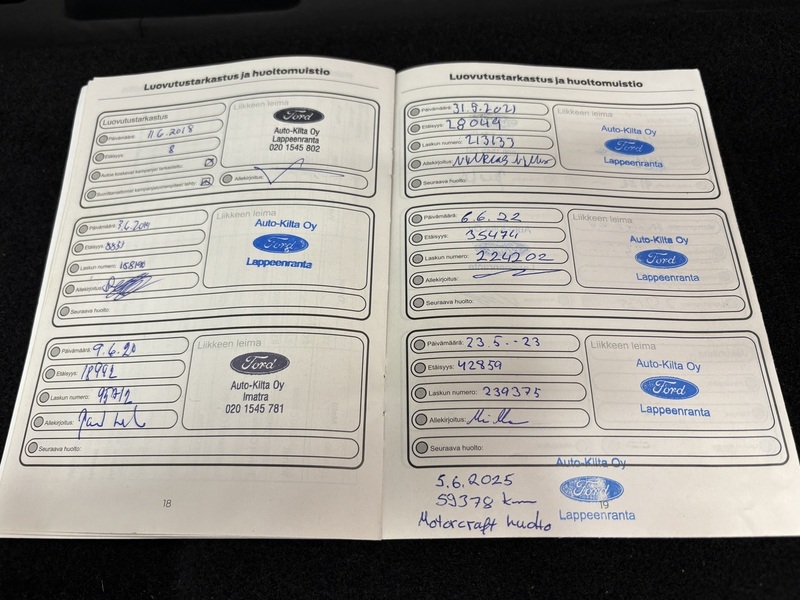 Luovutustarkastus ja huoltomuistio
Luovutustarkastus
Päivämäärä: 11.6.2018
Etäisyys: 8
Allekirjoitus:
Liikkeen leima
Ford
Auto-Kilta Oy
Lappeenranta
020 1545 802
Päivämäärä:
Etäisyys:
Laskun numero:
Allekirjoitus:
Seuraava huolto:
Liikkeen leima
Auto-Kilta Oy
Ford
Lappeenranta
Päivämäärä: 9.6.20
Etäisyys: 18992
Laskun numero:
Allekirjoitus:
Seuraava huolto:
Liikkeen leima
Ford
Auto-Kilta Oy
Imatra
020 1545 781
18
Luovutustarkastus ja huoltomuistio
Päivämäärä: 31.8.2021
Etäisyys: 28049
Laskun numero: 213133
Allekirjoitus:
Seuraava huolto:
Liikkeen leima
Auto-Kilta Oy
Ford
Lappeenranta
Päivämäärä: 6.6.22
Etäisyys: 35474
Laskun numero: 224202
Allekirjoitus:
Seuraava huolto:
Liikkeen leima
Auto-Kilta Oy
Ford
Lappeenranta
Päivämäärä: 23.5.-23
Etäisyys: 42859
Laskun numero: 239375
Allekirjoitus:
Seuraava huolto:
Liikkeen leima
Auto-Kilta Oy
Ford
Lappeenranta
5.6.2025
59378 km
Motorcraft huolto
Auto-Kilta Oy
Ford
Lappeenranta
19